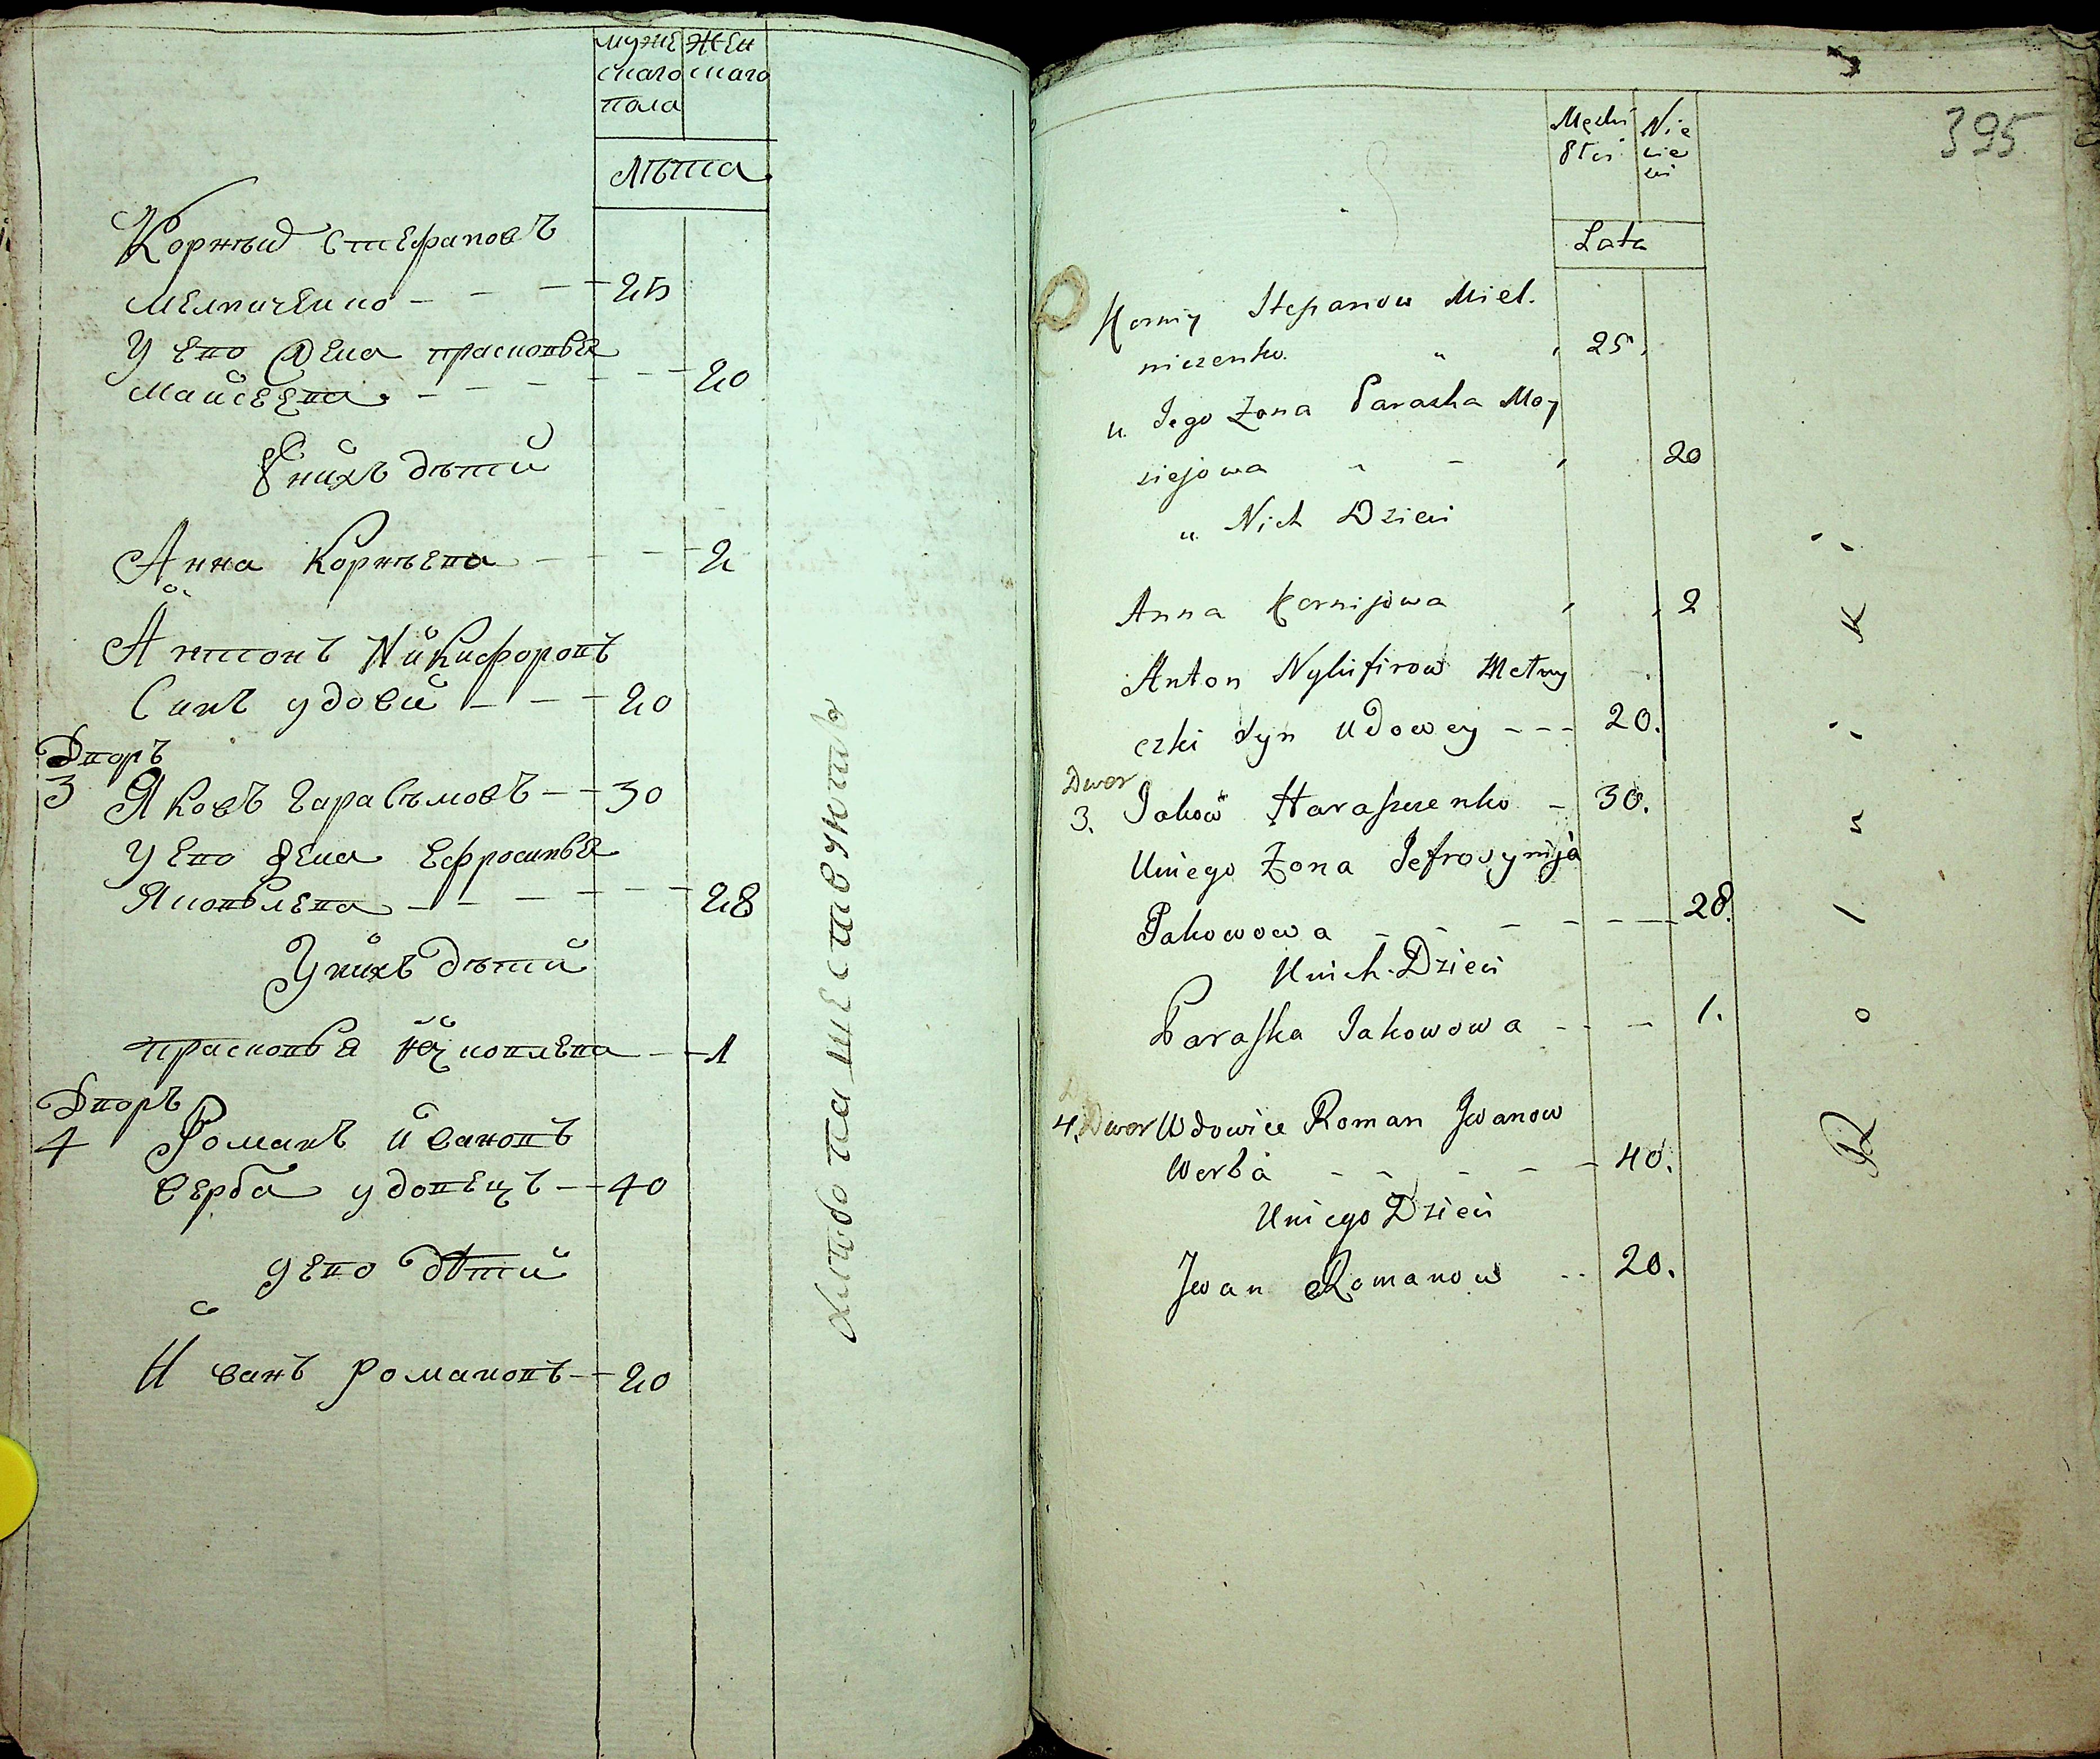 муже жен
скаго скаго
пола
лѣта
Корнѣй Стефановъ
мелниченко - - - 25
У его жена прасковья
майсеева - - - - - 20
У нихъ дѣти
Анна Корнѣева - - - 2
Антонъ Никифоровъ
Синъ удовы - - - 20
Дворъ
3 Яковъ Гарасымовъ - - 30
У его жена Ефросинья
Яковлева - - - - - - 28
У нихъ дѣти
прасковья яковлева - - 1
Дворъ
4 Романъ Ивановъ
верба удовецъ - - 40
У его дѣти
Иванъ романовъ - - 20
хлѣбопашествуютъ
395
Męski Nie
Płci wie
ści
Lata
Korniy Stepanow Miel.
niczenko. 25.
u Jego Żona Paraska Moy
siejowa - - 20
u Nich Dzieci
Anna Kornijowa 2
Anton Nykifirow
czki Syn Udowey - - - 20.
Dwor
3. Jakow Haraszenko - 30.
Uniego Żona Jefrosynija
Jakowowa - - - - - 28.
Unich Dzieci
Paraska Jakowowa - - - 1.
4. Dwor Wdowiec Roman Iwanow
Werba - - - - - 40.
Uniego Dzieci
Iwan Romanow - - 20.
Rolniki